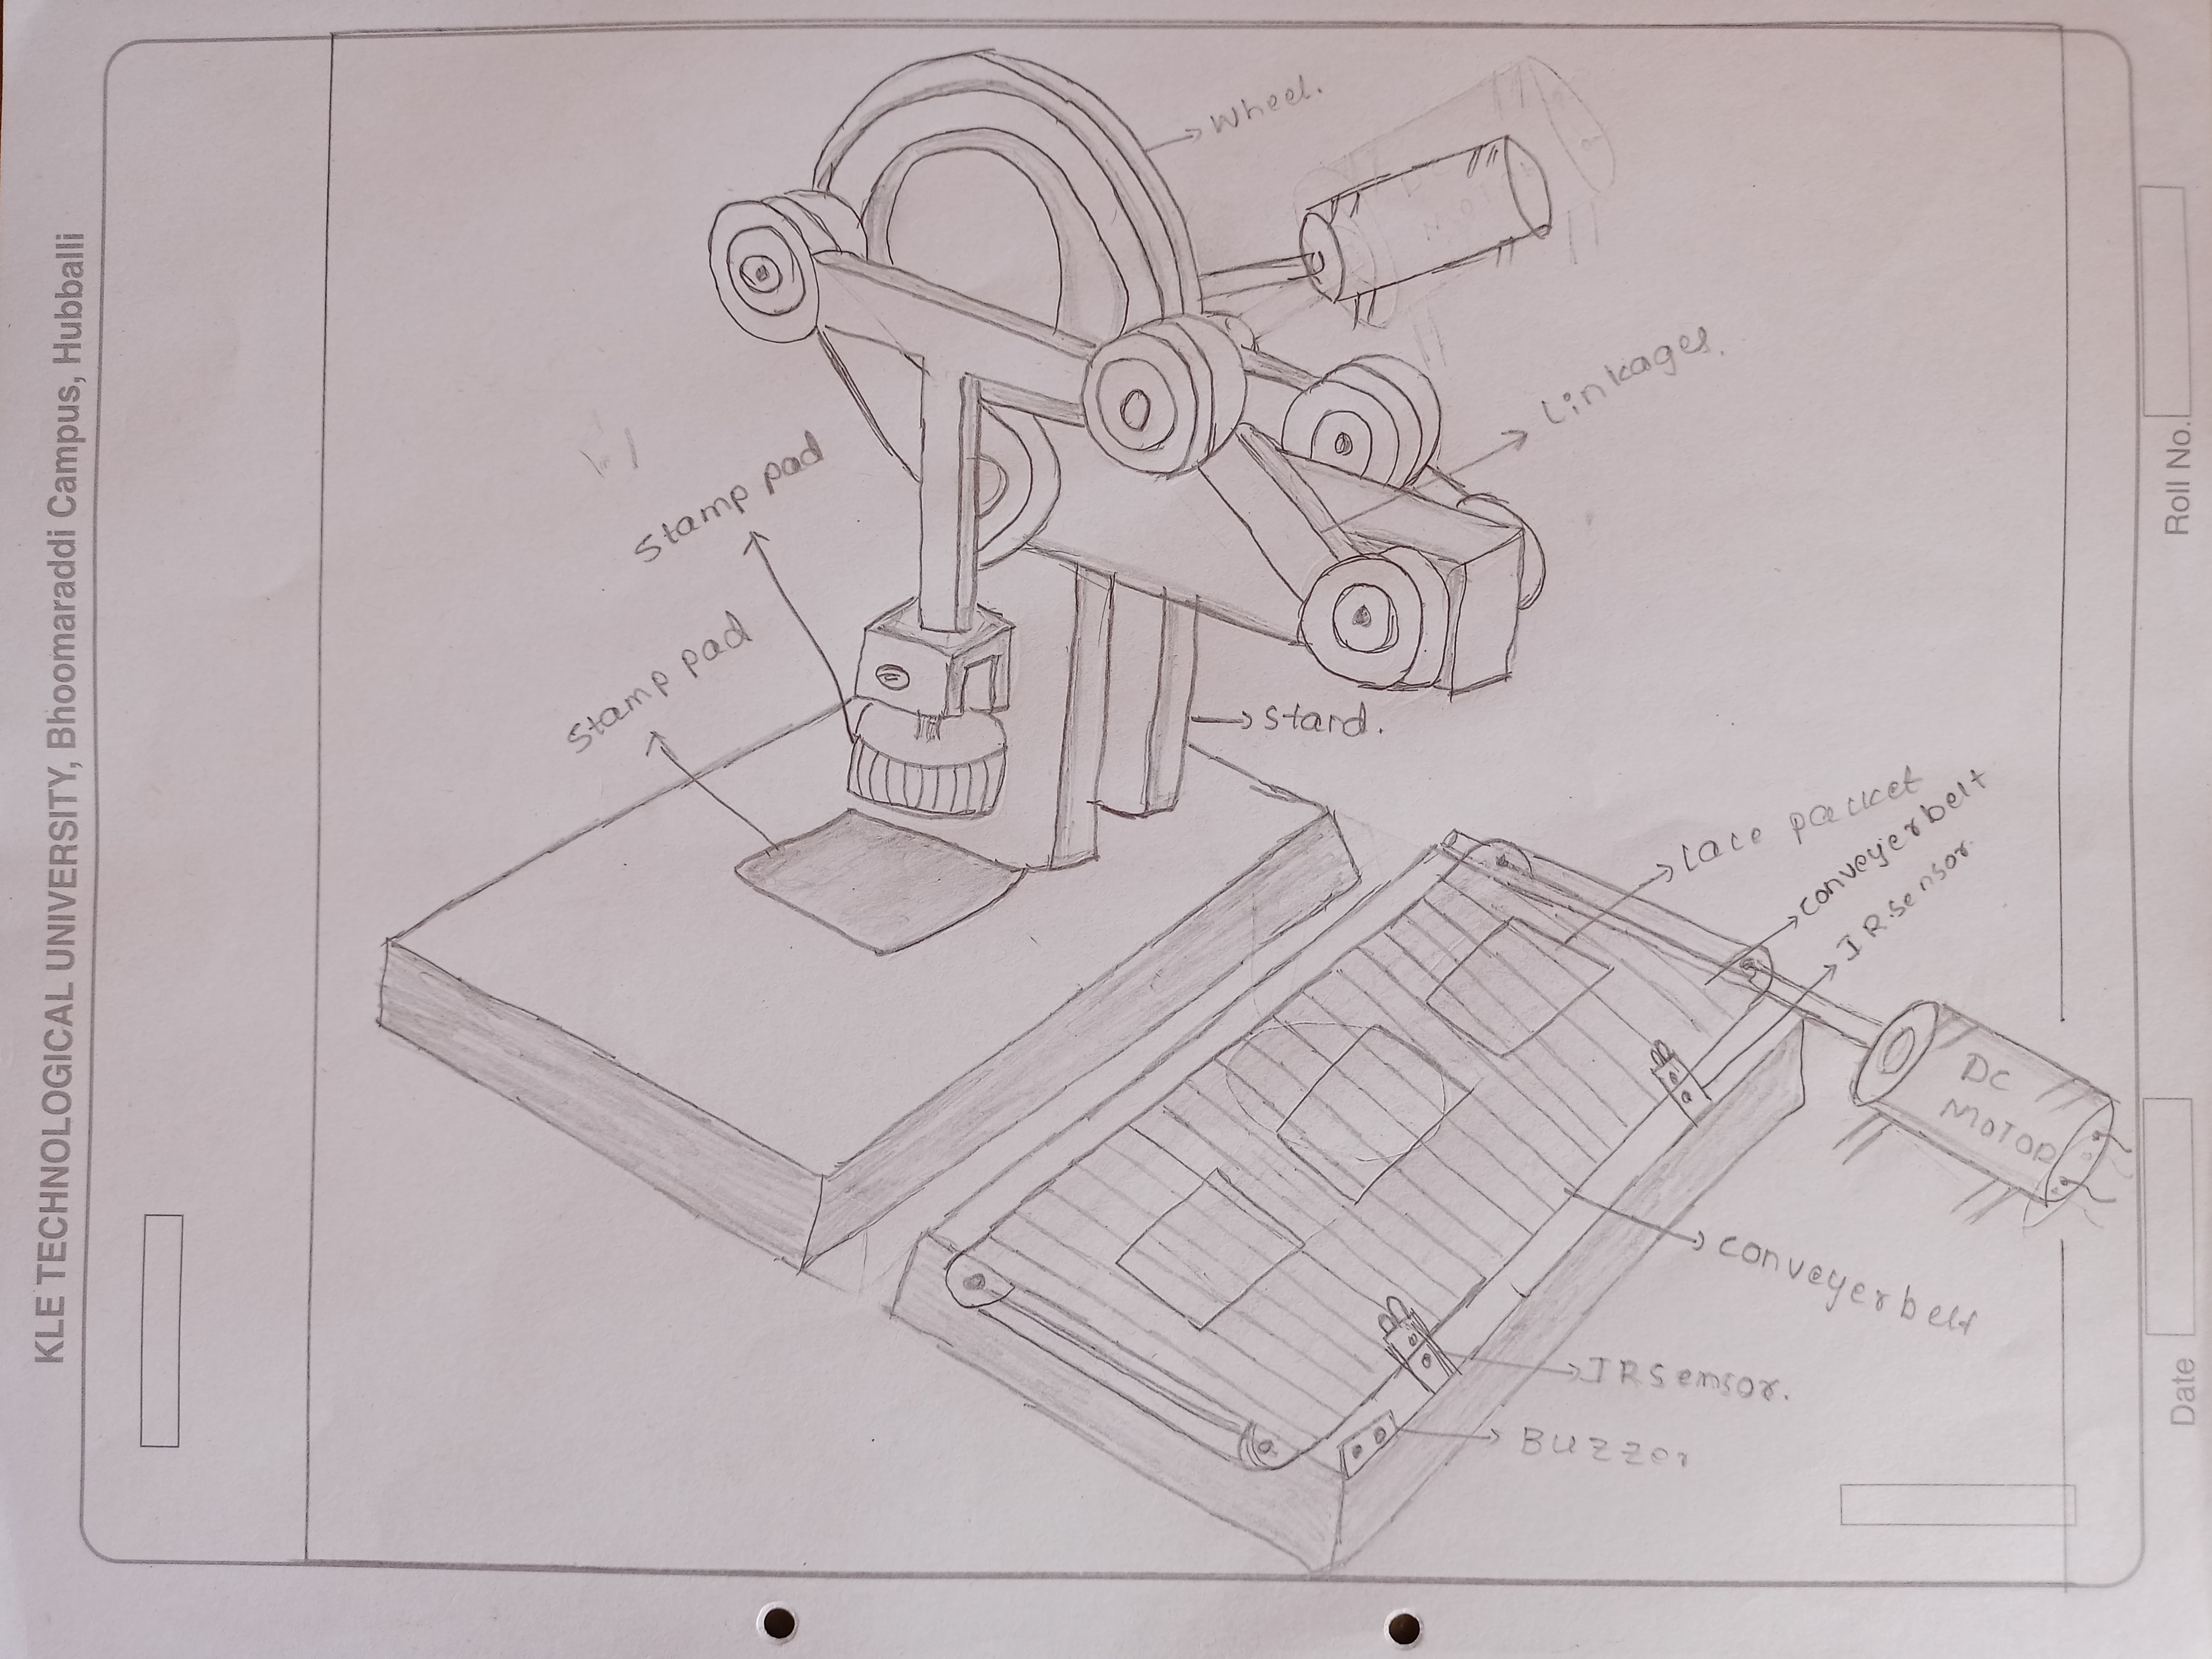 KLE TECHNOLOGICAL UNIVERSITY, Bhoomaraddi Campus, Hubballi
Wheel.
Linkages.
Stamp pad
Stamp pad
Stand.
Lace packet
conveyer belt
IR sensor.
DC
MOTOR
conveyer belt
IR Sensor.
BUZZer
Roll No.
Date